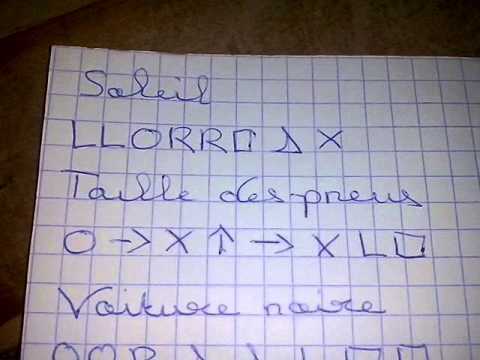 Soleil
LLORR□ △ X
Taille des pneus
O → X ↑ → X L □
Voiture noire